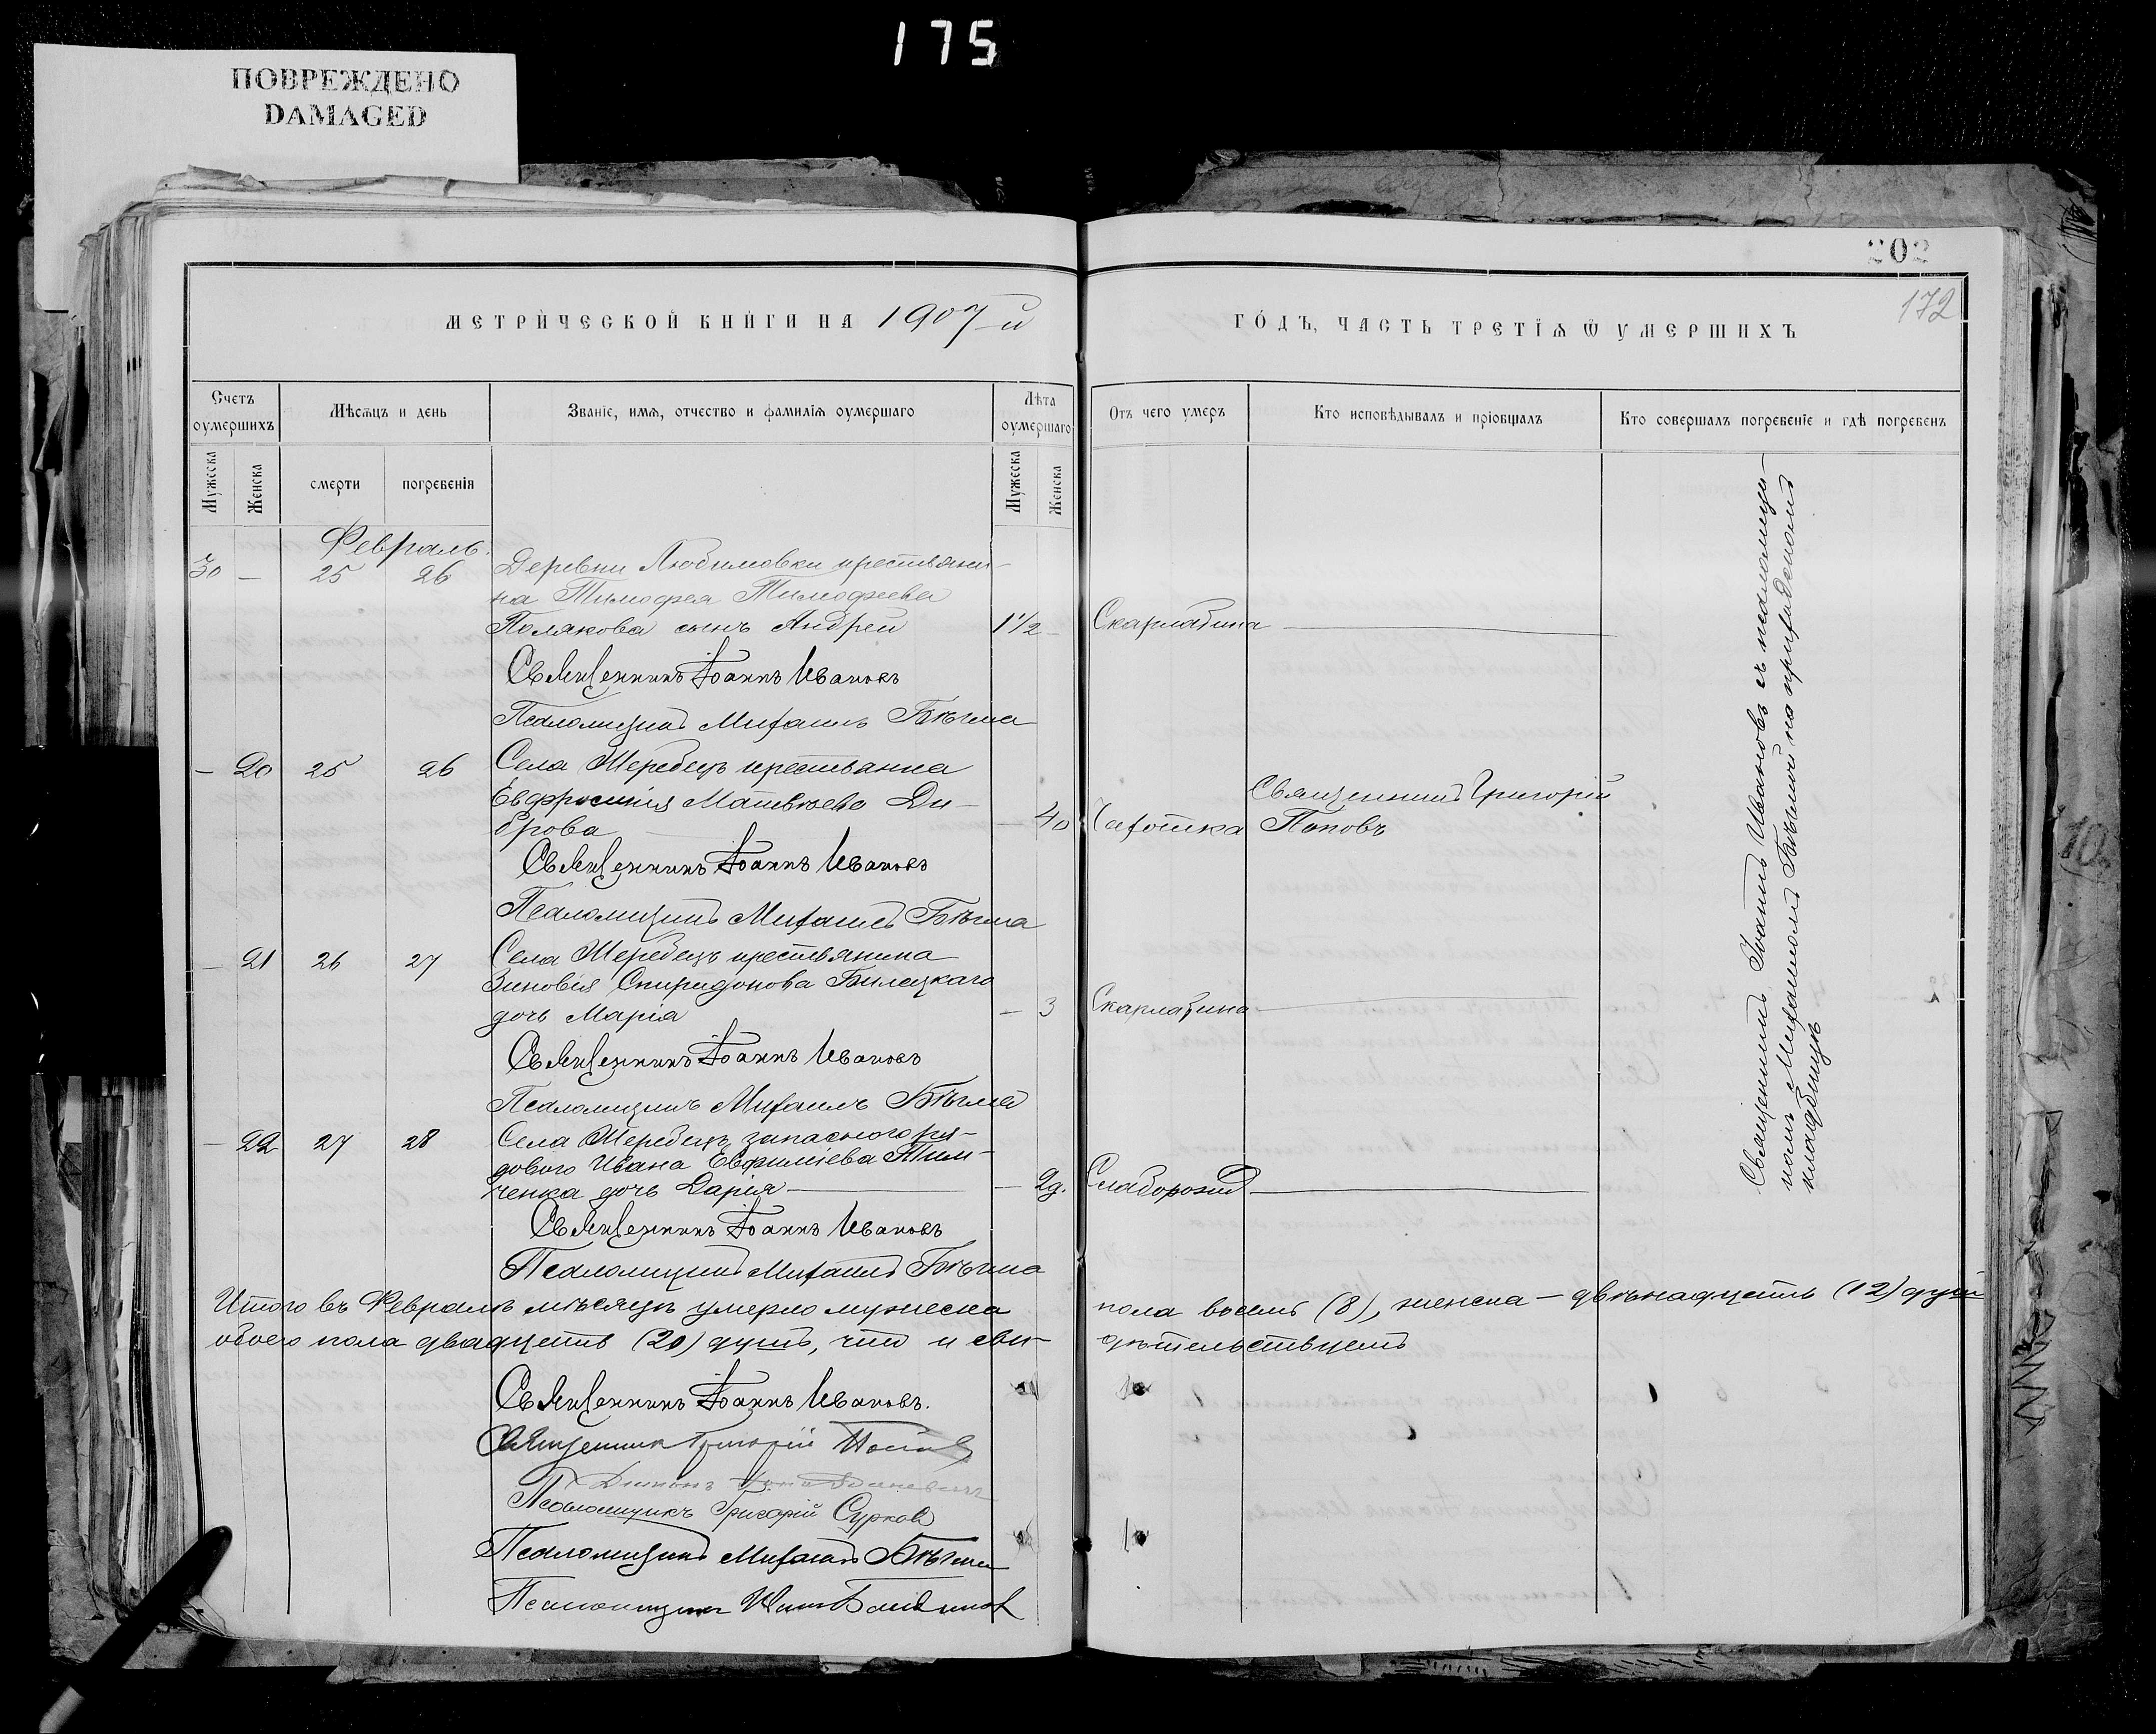 175
ПОВРЕЖДЕНО
DAMAGED
202
172
МЕТРИЧЕСКОЙ КНИГИ НА 1907-й
ГОДЪ, ЧАСТЬ ТРЕТІѦ Ѿ УМЕРШИХЪ
Счетъ оумершихъ
Мѣсѧцъ и день
Званіе, имѧ, отчество и фамиліѧ оумершаго
Лѣта оумершаго
Отъ чего умеръ
Кто исповѣдывалъ и пріобщалъ
Кто совершалъ погребеніе и гдѣ погребенъ
Мужеска
Женска
смерти
погребенія
Мужеска
Женска
Февраль.
30 — 25 26 Деревни Любимовки крестьяни-
на Тимофея Тимофеева
Полякова сынъ Андрей 1 1/2 — Скарлатина
Священникъ Іоаннъ Ивановъ
Псаломщикъ Михаилъ Бѣгма
— 20 25 26 Села Жеребецъ крестьянка
Евфросинія Матвѣева Ди-
брова — 40 Чахотка Священникъ Григорій
Поповъ
Священникъ Іоаннъ Ивановъ
Псаломщикъ Михаилъ Бѣгма
— 21 26 27 Села Жеребецъ крестьянина
Зиновія Спиридонова Билецкаго
дочь Марія — 3 Скарлатина
Священникъ Іоаннъ Ивановъ
Псаломщикъ Михаилъ Бѣгма
— 22 27 28 Села Жеребецъ запасного ря-
дового Ивана Евфиміева Тим-
ченка дочь Дарія — 2д. Слаборожд
Священникъ Іоаннъ Ивановъ
Псаломщикъ Михаилъ Бѣгма
Священникъ Іоаннъ Ивановъ съ псаломщи-
комъ Михаиломъ Бѣгмой на приходскомъ
кладбищѣ
Итого въ Февралѣ мѣсяцѣ умерло мужеска пола восемь (8), женска — двѣнадцать (12) душъ
обоего пола двадцать (20) душъ, что и сви-
дѣтельствуемъ
Священникъ Іоаннъ Ивановъ.
Священникъ Григорій Поповъ
Псаломщикъ Григорій Сурков
Псаломщикъ Михаилъ Бѣгма
Псаломщикъ Иван